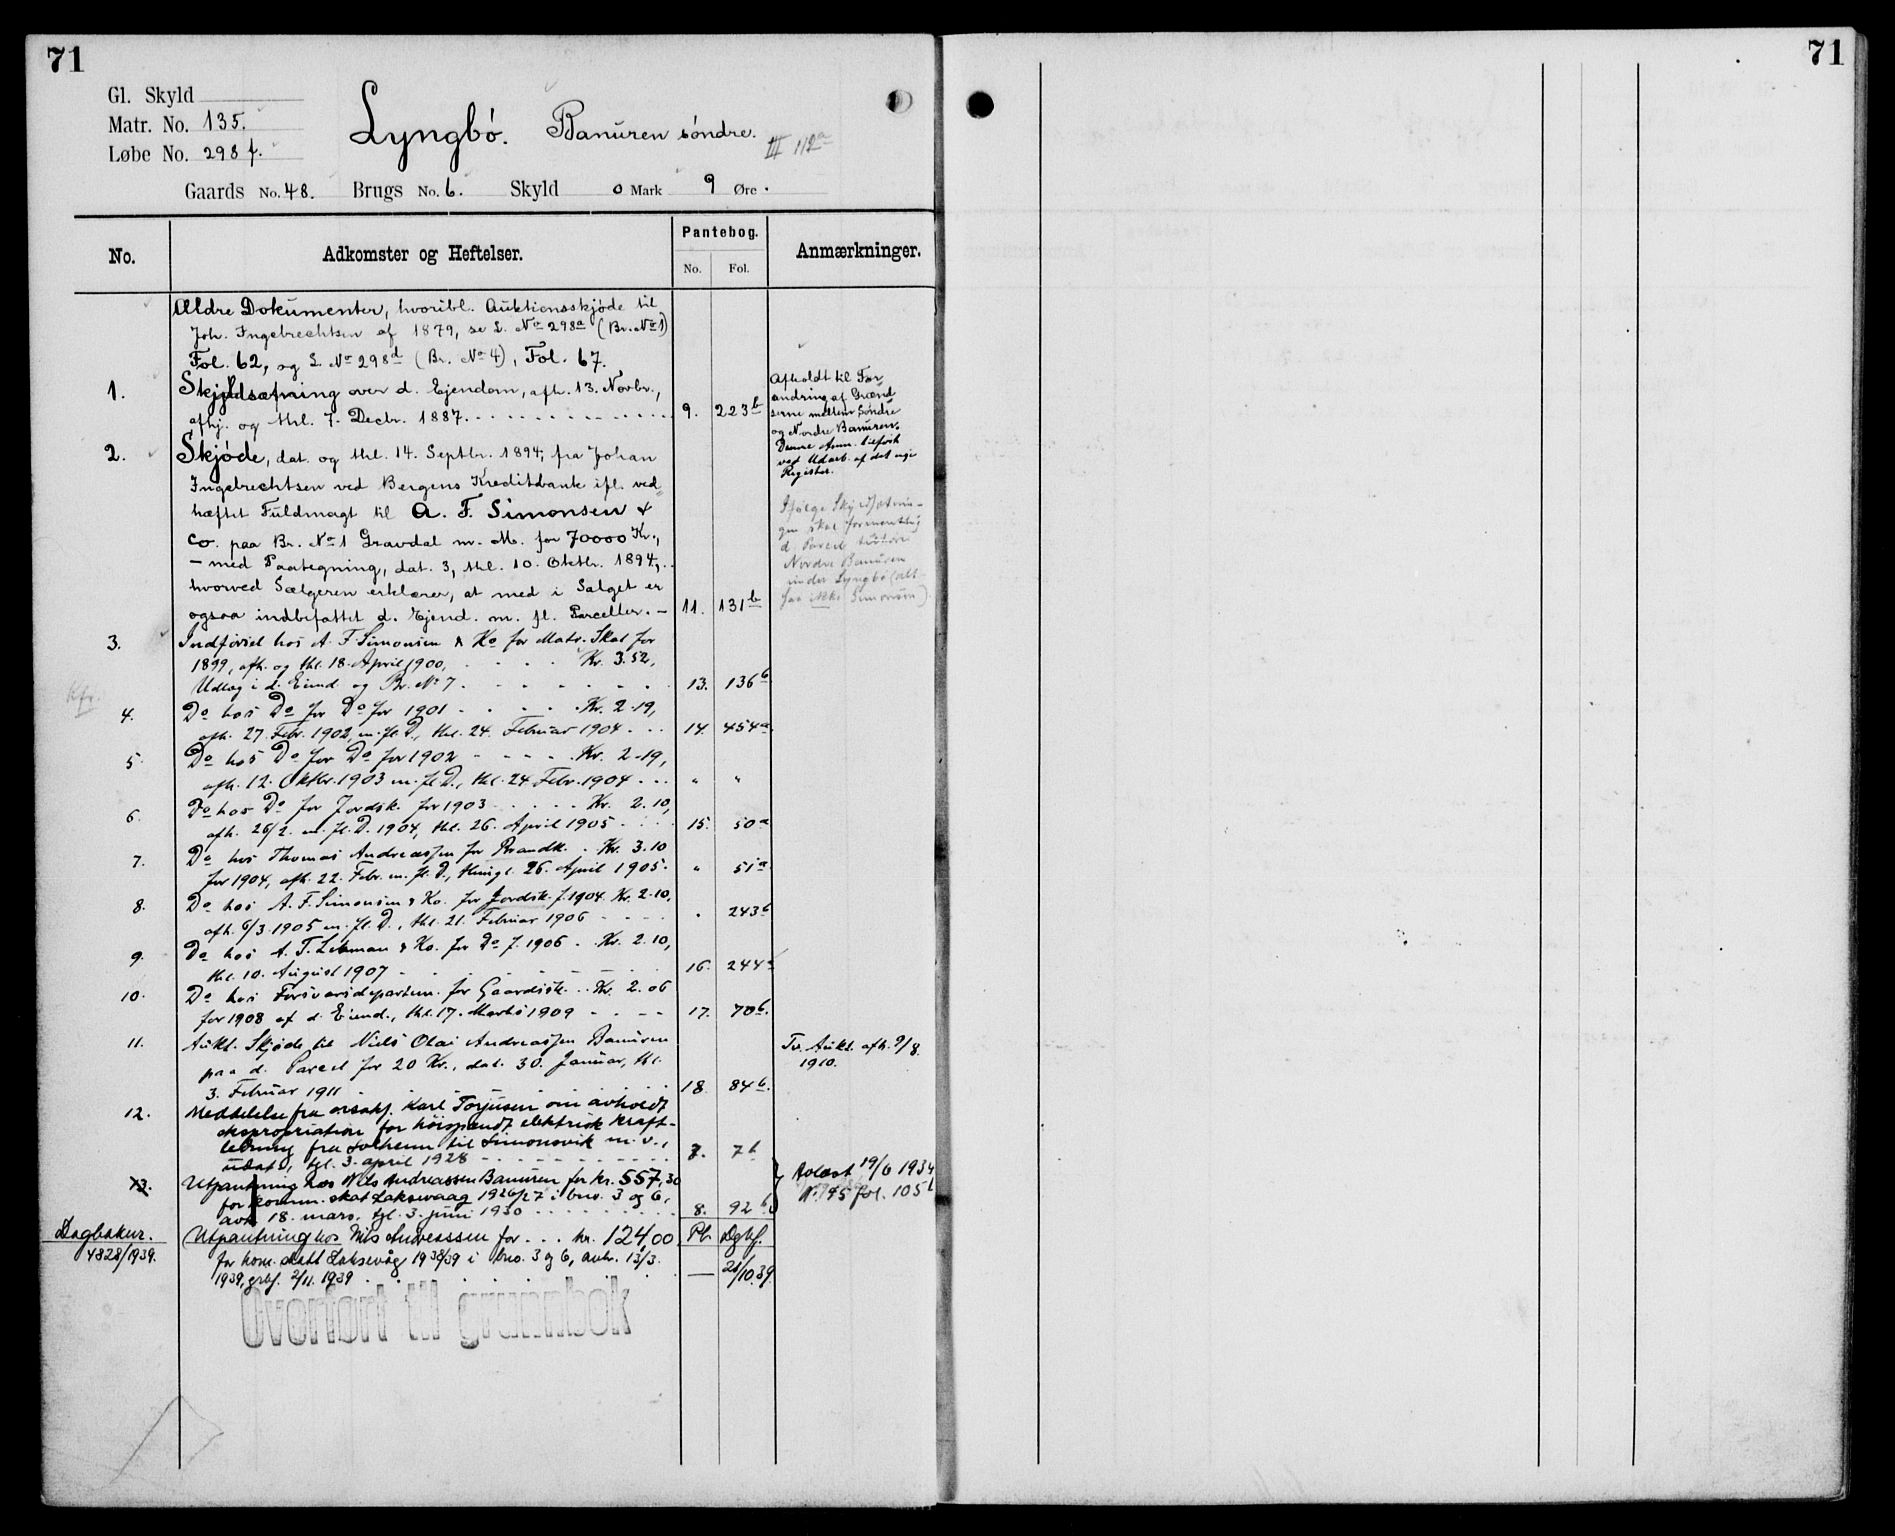 71
71
Gl. Skyld
Matr. No. 135.
Løbe No. 298 f.
Lyngbö. Banuren söndre.
III 112a
Gaards No. 48. Brugs No. 6. Skyld 0 Mark 9 Øre.
No.
Adkomster og Heftelser.
Pantebog.
No. Fol.
Anmærkninger.
Ældre Dokumenter, hvoribl. Auktionsskjøde til
Joh. Ingebrechtsen af 1879, se L. No 298a (Br. No 1)
Fol. 62, og L. No 298d (Br. No 4), Fol. 67.
1. Skyldsætning over d. Ejendom, afh. 13. Novbr.,
afhj. og thl. 7. Decbr. 1887. 9. 223b
Afholdt til For-
andring af Grænd-
serne mellem Söndre
og Nordre Banuren.
Denne Anm. tilföit
ved Udarb. af det nye
Register.
2. Skjöde, dat. og thl. 14. Septbr. 1894, fra Johan
Ingebrechtsen ved Bergens Kreditbank ifl. ved-
hæftet Fuldmagt til A. F. Simonsen &
Co. paa Br. No 1 Gravdal m. M. for 70000 Kr.,
– med Paategning, dat. 3, thl. 10. Oktbr. 1894,
hvorved Sælgeren erklærer, at med i Salget er
ogsaa indbefattet d. Ejend. m. fl. Parceller. – 11. 131b
Ifölge Skyldsætnin-
gen skal formentlig
d. Parcel tilhöre
Nordre Banuren
under Lyngbö (alt-
saa ikke Simonsen)
3. Indförsel hos A. F. Simonsen & Ko for Matr. Skat for
1899, afh. og thl. 18. April 1900, Kr. 3.52,
Udlæg i d. Eiend. og Br. No 7. 13. 136b
Kfr.
4. Do hos Do for Do for 1901 Kr. 2.19,
afh. 27. Febr. 1902, m. fl. D., thl. 24. Februar 1904 14. 454a
5. Do hos Do for Do for 1902 Kr. 2.19,
afh. 12. Oktbr. 1903 m. fl. D., thl. 24 Febr. 1904 " "
6. Do hos Do for Jordsk. for 1903 Kr. 2.10,
afh. 26/2. m. fl. D. 1904, thl. 26. April 1905 15. 50a
7. Do hos Thomas Andreassen for Brandk. Kr. 3.10
for 1904, afh. 22. Febr. m. fl. D., thingl. 26. April 1905. " 51a
8. Do hos A. F. Simonsen & Ko. for Jordsk. f. 1904. Kr. 2.10,
afh. 6/3 1905 m. fl. D., thl. 21. Februar 1906 " 243b
9. Do hos A. T. Lehman & Ko. for Do f. 1906 Kr. 2.10,
thl. 10. August 1907 16. 244a
10. Do hos Forsvarsdepartem. for Gaardssk. Kr. 2.06
for 1908 af d. Eiend., thl. 17. Marts 1909 17. 70b.
11. Aukt. Skjöde til Niels Olai Andreassen Banuren
paa d. Parcel for 20 Kr., dat. 30. Januar, thl.
3. Februar 1911 18. 84b.
Tv. Aukt. afh. 9/8.
1910.
12. Meddelelse fra orsakf. Karl Torjusen om avholdt
ekspropriation for höispendt elektrisk kraft-
ledning fra Solheim til Simonsvik m. v.,
udat., tgl. 3. april 1928 7. 7b
13. Utpantning hos Nils Andreassen Banuren for kr. 557,30
for komm. skat Laksevaag 1926/27 i bno. 3 og 6,
avh. 18. mars, tgl. 3. juni 1930 8. 92b
Avlöst 19/6 1934
Nr. 45 fol. 105b
Dagboknr.
4828/1939.
Utpantning hos Nils Andreassen for kr. 124,00 Pb. Dgbf.
for kom. skatt Laksevåg 1938/39 i bno. 3 og 6, avh. 13/3.
1939, grbf. 2/11. 1939 — 28/10.39
Overført til grunnbok